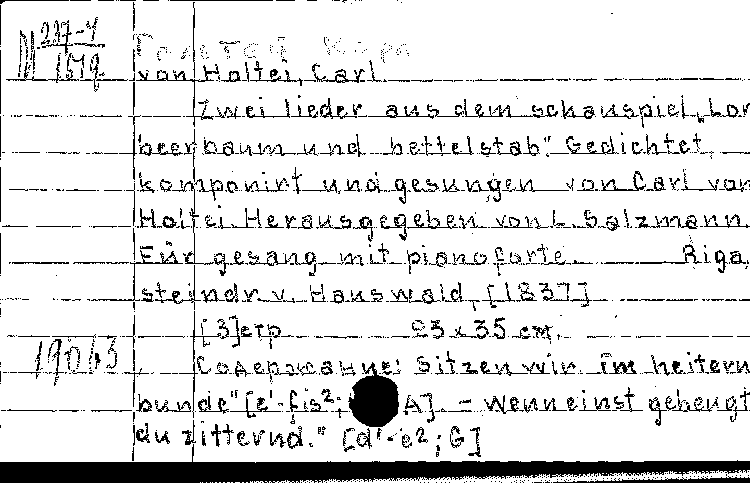 М 237-4
Гольтей Карл
1519
von Holtei, Carl
Zwei lieder aus dem schauspiel „Lor
beerbaum und bettelstab". Gedichtet,
komponirt und gesungen von Carl von
Holtei. Herausgegeben von L. Salzmann.
Für gesang mit pianoforte. Riga,
steindr. v. Hauswald, [1837]
[3]стр 23 x 35 см.
19063
Содержание: Sitzen wir im heitern
bunde" [e'-fis²; A]. - Wenn einst gebeugt
du zitternd." [d'-e²; G]